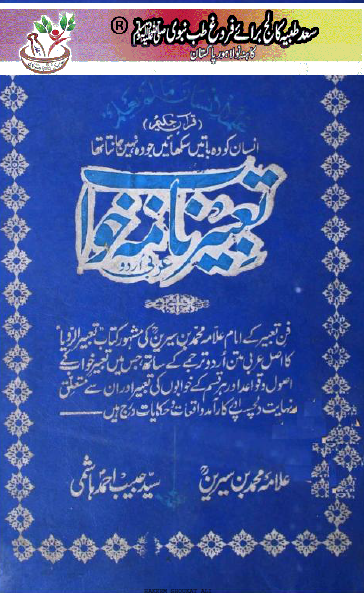 سعد طبیہ کالج برائے فروغ طب نبوی ﷺ ®
کاہنہ نو لاہور پاکستان
علم الانسان مالم یعلم
(قرآن حکیم)
انسان کو وہ باتیں سکھائیں جو وہ نہیں جانتا تھا
تعبیر نامہ خواب
عربی اردو
فن تعبیر کے امام علامہ محمد بن سیرینؒ کی مشہور کتاب تعبیر الرویا
کا اصل عربی متن اُردو ترجمے کے ساتھ جس میں تعبیر خواب کے
اصول و قواعد اور ہر قسم کے خوابوں کی تعبیر اور ان سے متعلق
نہایت دلچسپ اور کارآمد واقعات و حکایات درج ہیں
علامہ محمد بن سیرینؒ
سید حبیب احمد ہاشمی